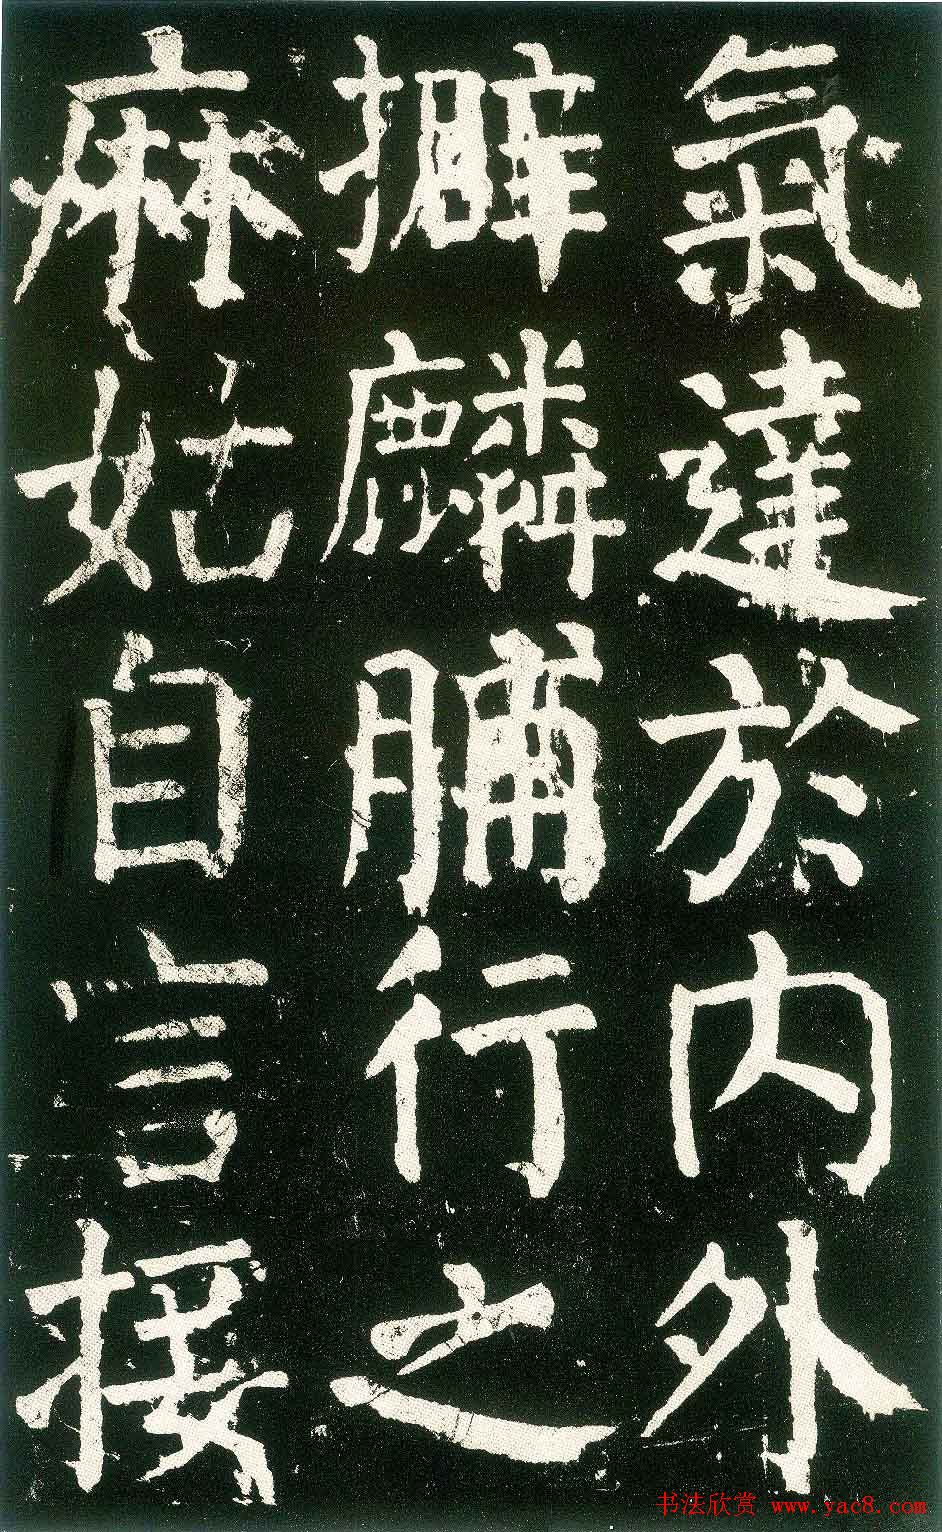 氣達於內外
擗麟脯行之
麻姑自言接
书法欣赏 www.yac8.com